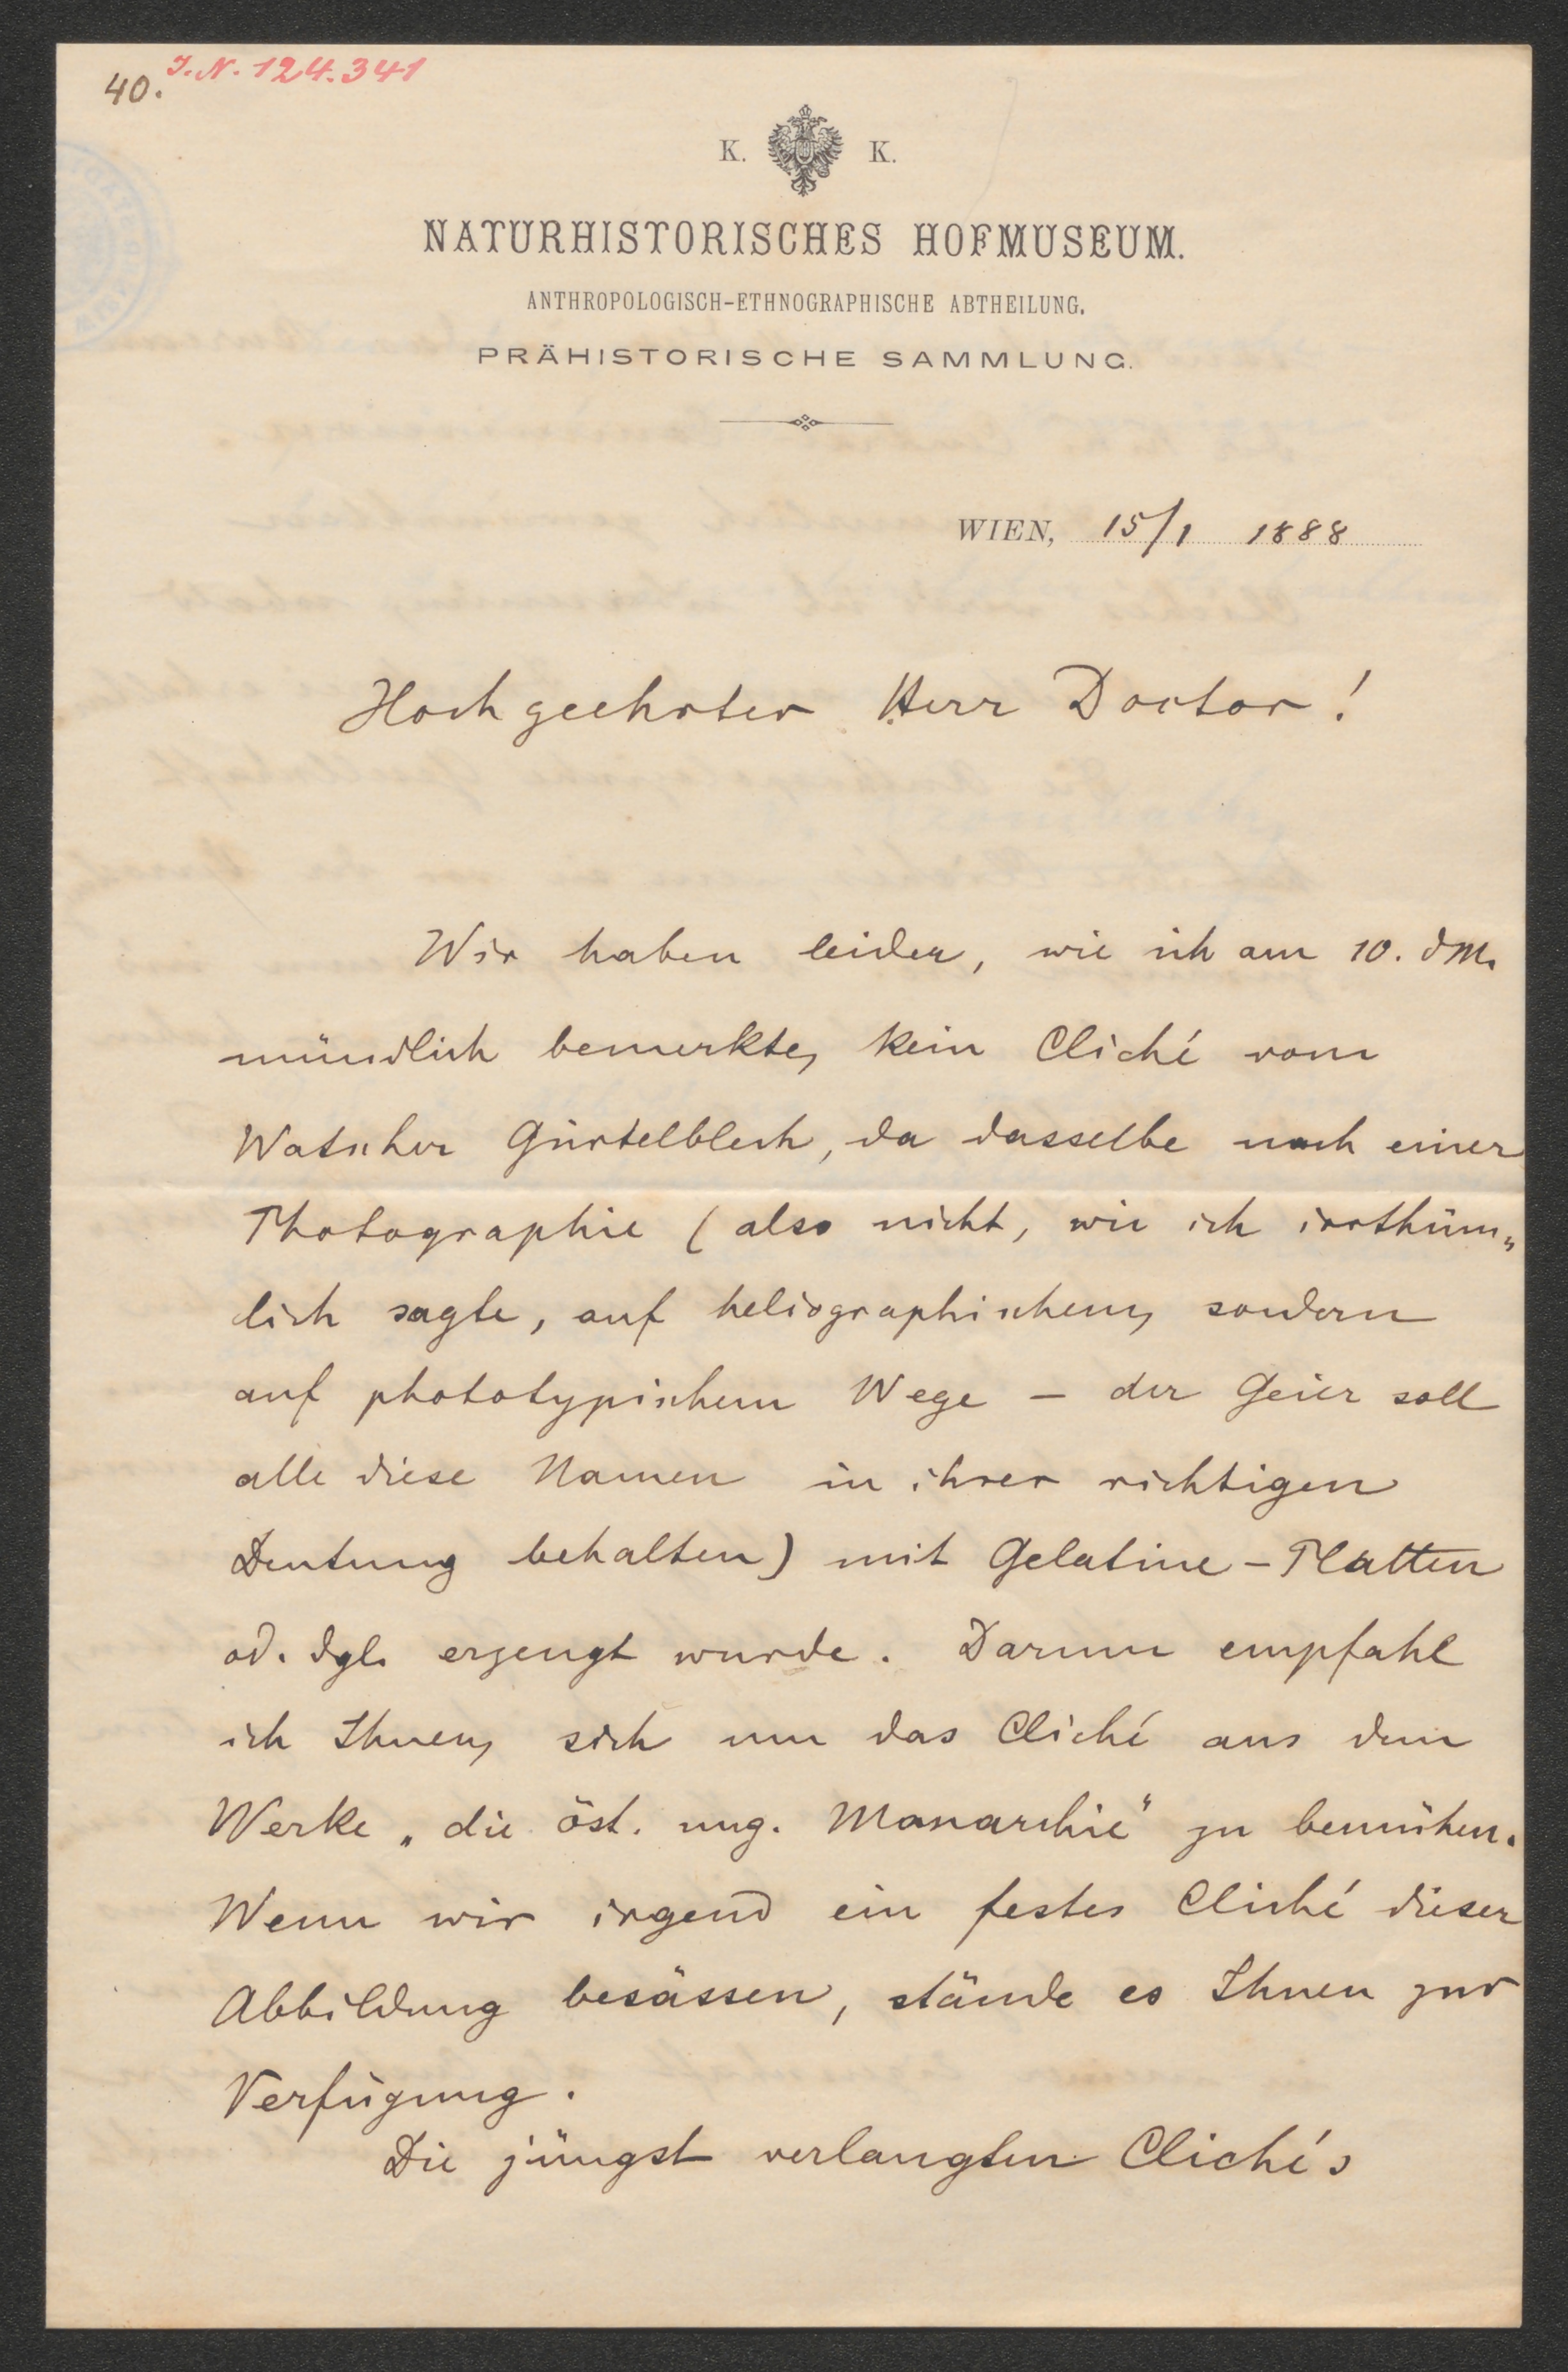 40. I. N. 124.341
K. K.
NATURHISTORISCHES HOFMUSEUM.
ANTHROPOLOGISCH-ETHNOGRAPHISCHE ABTHEILUNG.
PRÄHISTORISCHE SAMMLUNG.
WIEN, 15/1 1888
Hochgeehrter Herr Doctor!
Wir haben leider, wie ich am 10. dM.
mündlich bemerkte, kein Cliché vom
Watscher Gürtelblech, da dasselbe nach einer
Photographie (also nicht, wie ich irrthüm„
lich sagte, auf heliographischem, sondern
auf phototypischem Wege – der Geier soll
alle diese Namen in ihrer richtigen
Deutung behalten) mit Gelatine-Platten
od. dgl. erzeugt wurde. Darum empfahl
ich Ihnen, sich um das Cliché aus dem
Werke „die öst. ung. Monarchie" zu bemühen.
Wenn wir irgend ein festes Cliché dieser
Abbildung besässen, stände es Ihnen zur
Verfügung.
Die jüngst verlangten Clichés